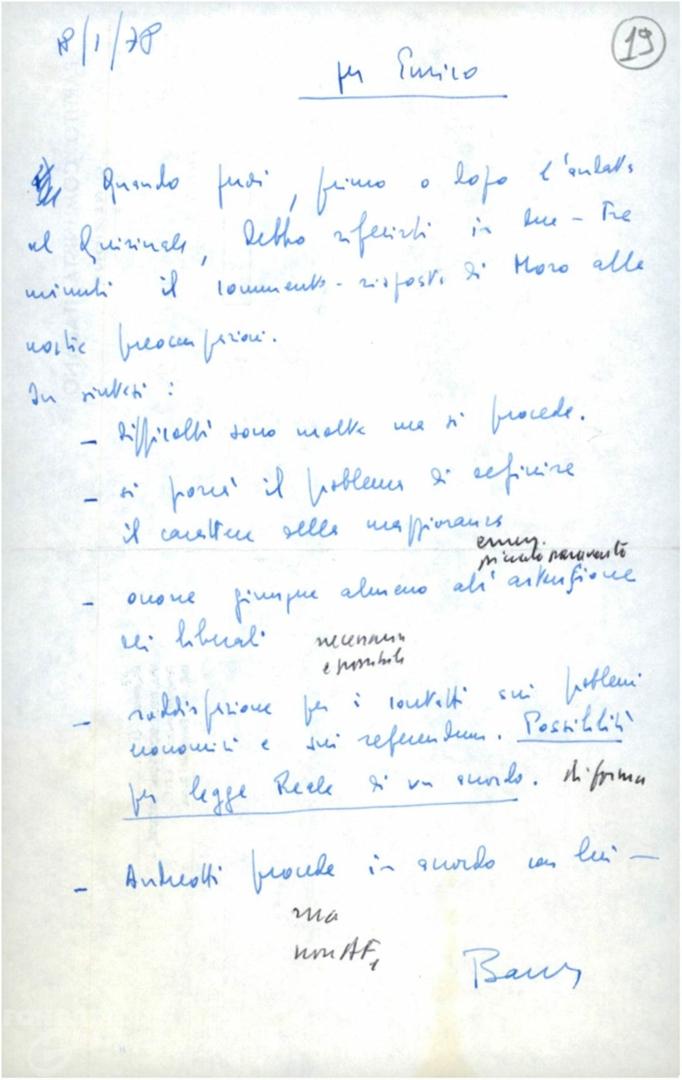 18/1/78
19
per Enrico
Quando puoi, primo o dopo l'andata
al Quirinale, debbo riferirti in due - tre
minuti il commento-risposta di Moro alle
nostre preoccupazioni.
In sintesi:
- difficoltà sono molte ma si procede.
- si porrà il problema di definire
il carattere della maggioranza
piccolo paravento
- occorre giungere almeno all'astensione
dei liberali
necessaria
e possibile
- soddisfazione per i contatti sui problemi
economici e sui referendum. Possibilità
per legge Reale di un accordo. di forma
- Andreotti procede in accordo con lui -
ma
non AF,
Barca